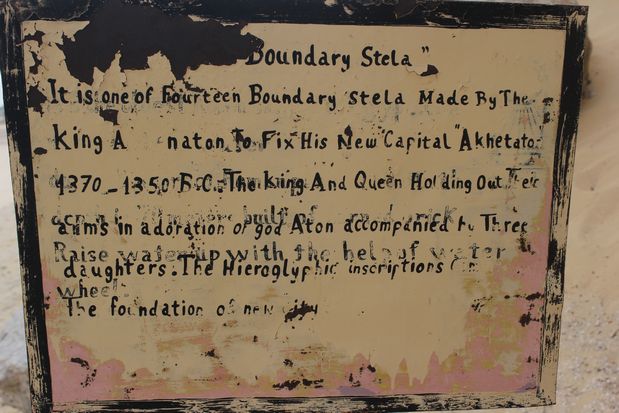 Boundary Stela"
It is one of Fourteen Boundary Stela Made By The
King A naton To Fix His New Capital "Akhetato
1370-1350 B.C. The King And Queen Holding Out Their
arms in adoration of god Aton accompanied by Three
Raise water up with the help of water
daughters. The Hieroglyphic inscriptions
wheel
the foundation of new city